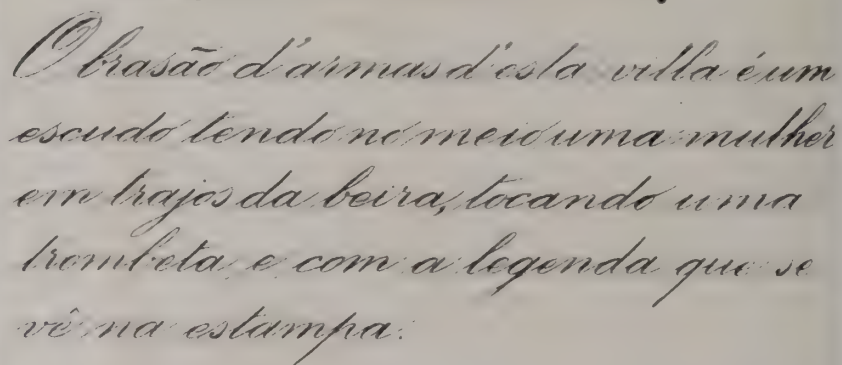 O brasão d'armas d'esta villa é um
escudo tendo no meio uma mulher
em trajos da beira, tocando uma
trombeta e com a legenda que se
vê na estampa.